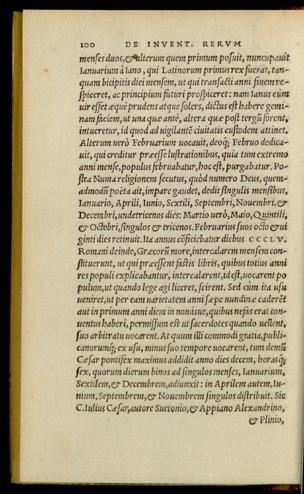 100 DE INVENT. RERVM
menses duos, & alterum quem primum posuit, nuncupauit
Ianuarium à Iano, qui Latinorum primus rex fuerat, tan-
quam bicipitis dei mensem, ut qui transacti anni finem re-
spiceret, ac principium futuri prospiceret: nam Ianus cùm
uir esset æquè prudens atque solers, dictus est habere gemi-
nam faciem, ut una quæ antè, altera quæ pòst tergũ forent,
intueretur, id quod ad uigilantẽ ciuitatis custodem attinet.
Alterum uerò Februarium uocauit, deoq́; Februo dedica-
uit, qui creditur præesse lustrationibus, quia tum extremo
anni mense, populus februabatur, hoc est, purgabatur. Po-
stra Numa religionem secutus, quòd numero Deus, quem-
admodũ poëta ait, impare gaudet, dedit singulis mensibus,
Ianuario, Aprili, Iunio, Sextili, Septembri, Nouembri, &
Decembri, undetricenos diès: Martio uerò, Maio, Quintili,
& Octobri, singulos & tricenos. Februarius suos octo & ui
ginti dies retinuit. Ita annus cõficiebatur diebus CCCLV.
Romani deinde, Græcorũ more, intercalarem mensem con-
stituerunt, ut qui præessent fastis libris, quibus totius anni
res populi explicabantur, intercalarent, id est, uocarent po
pulum, ut quando lege agi liceret, scirent. Sed cùm ita usu
ueniret, ut per eam uarietatem anni sæpe nundinæ caderẽt
aut in primum anni diem in nonásue, quibus nefas erat con-
uentus haberi, permissum est ut sacerdotes quando uellent,
suo arbitratu uocarent. At quum illi commodi gratia, publi-
canorunq́; ex usu, minus suo tempore uocarent, tum demũ
Cæsar pontifex maximus addidit anno dies decem, horasq́;
sex, quorum dierum binos ad singulos menses, Ianuarium,
Sextilem, & Decembrem, adiunxit: in Aprilem autem, Iu-
nium, Septembrem, & Nouembrem singulos distribuit. Sic
C. Iulius Cæsar, autore Suetonio, & Appiano Alexandrino,
& Plinio,